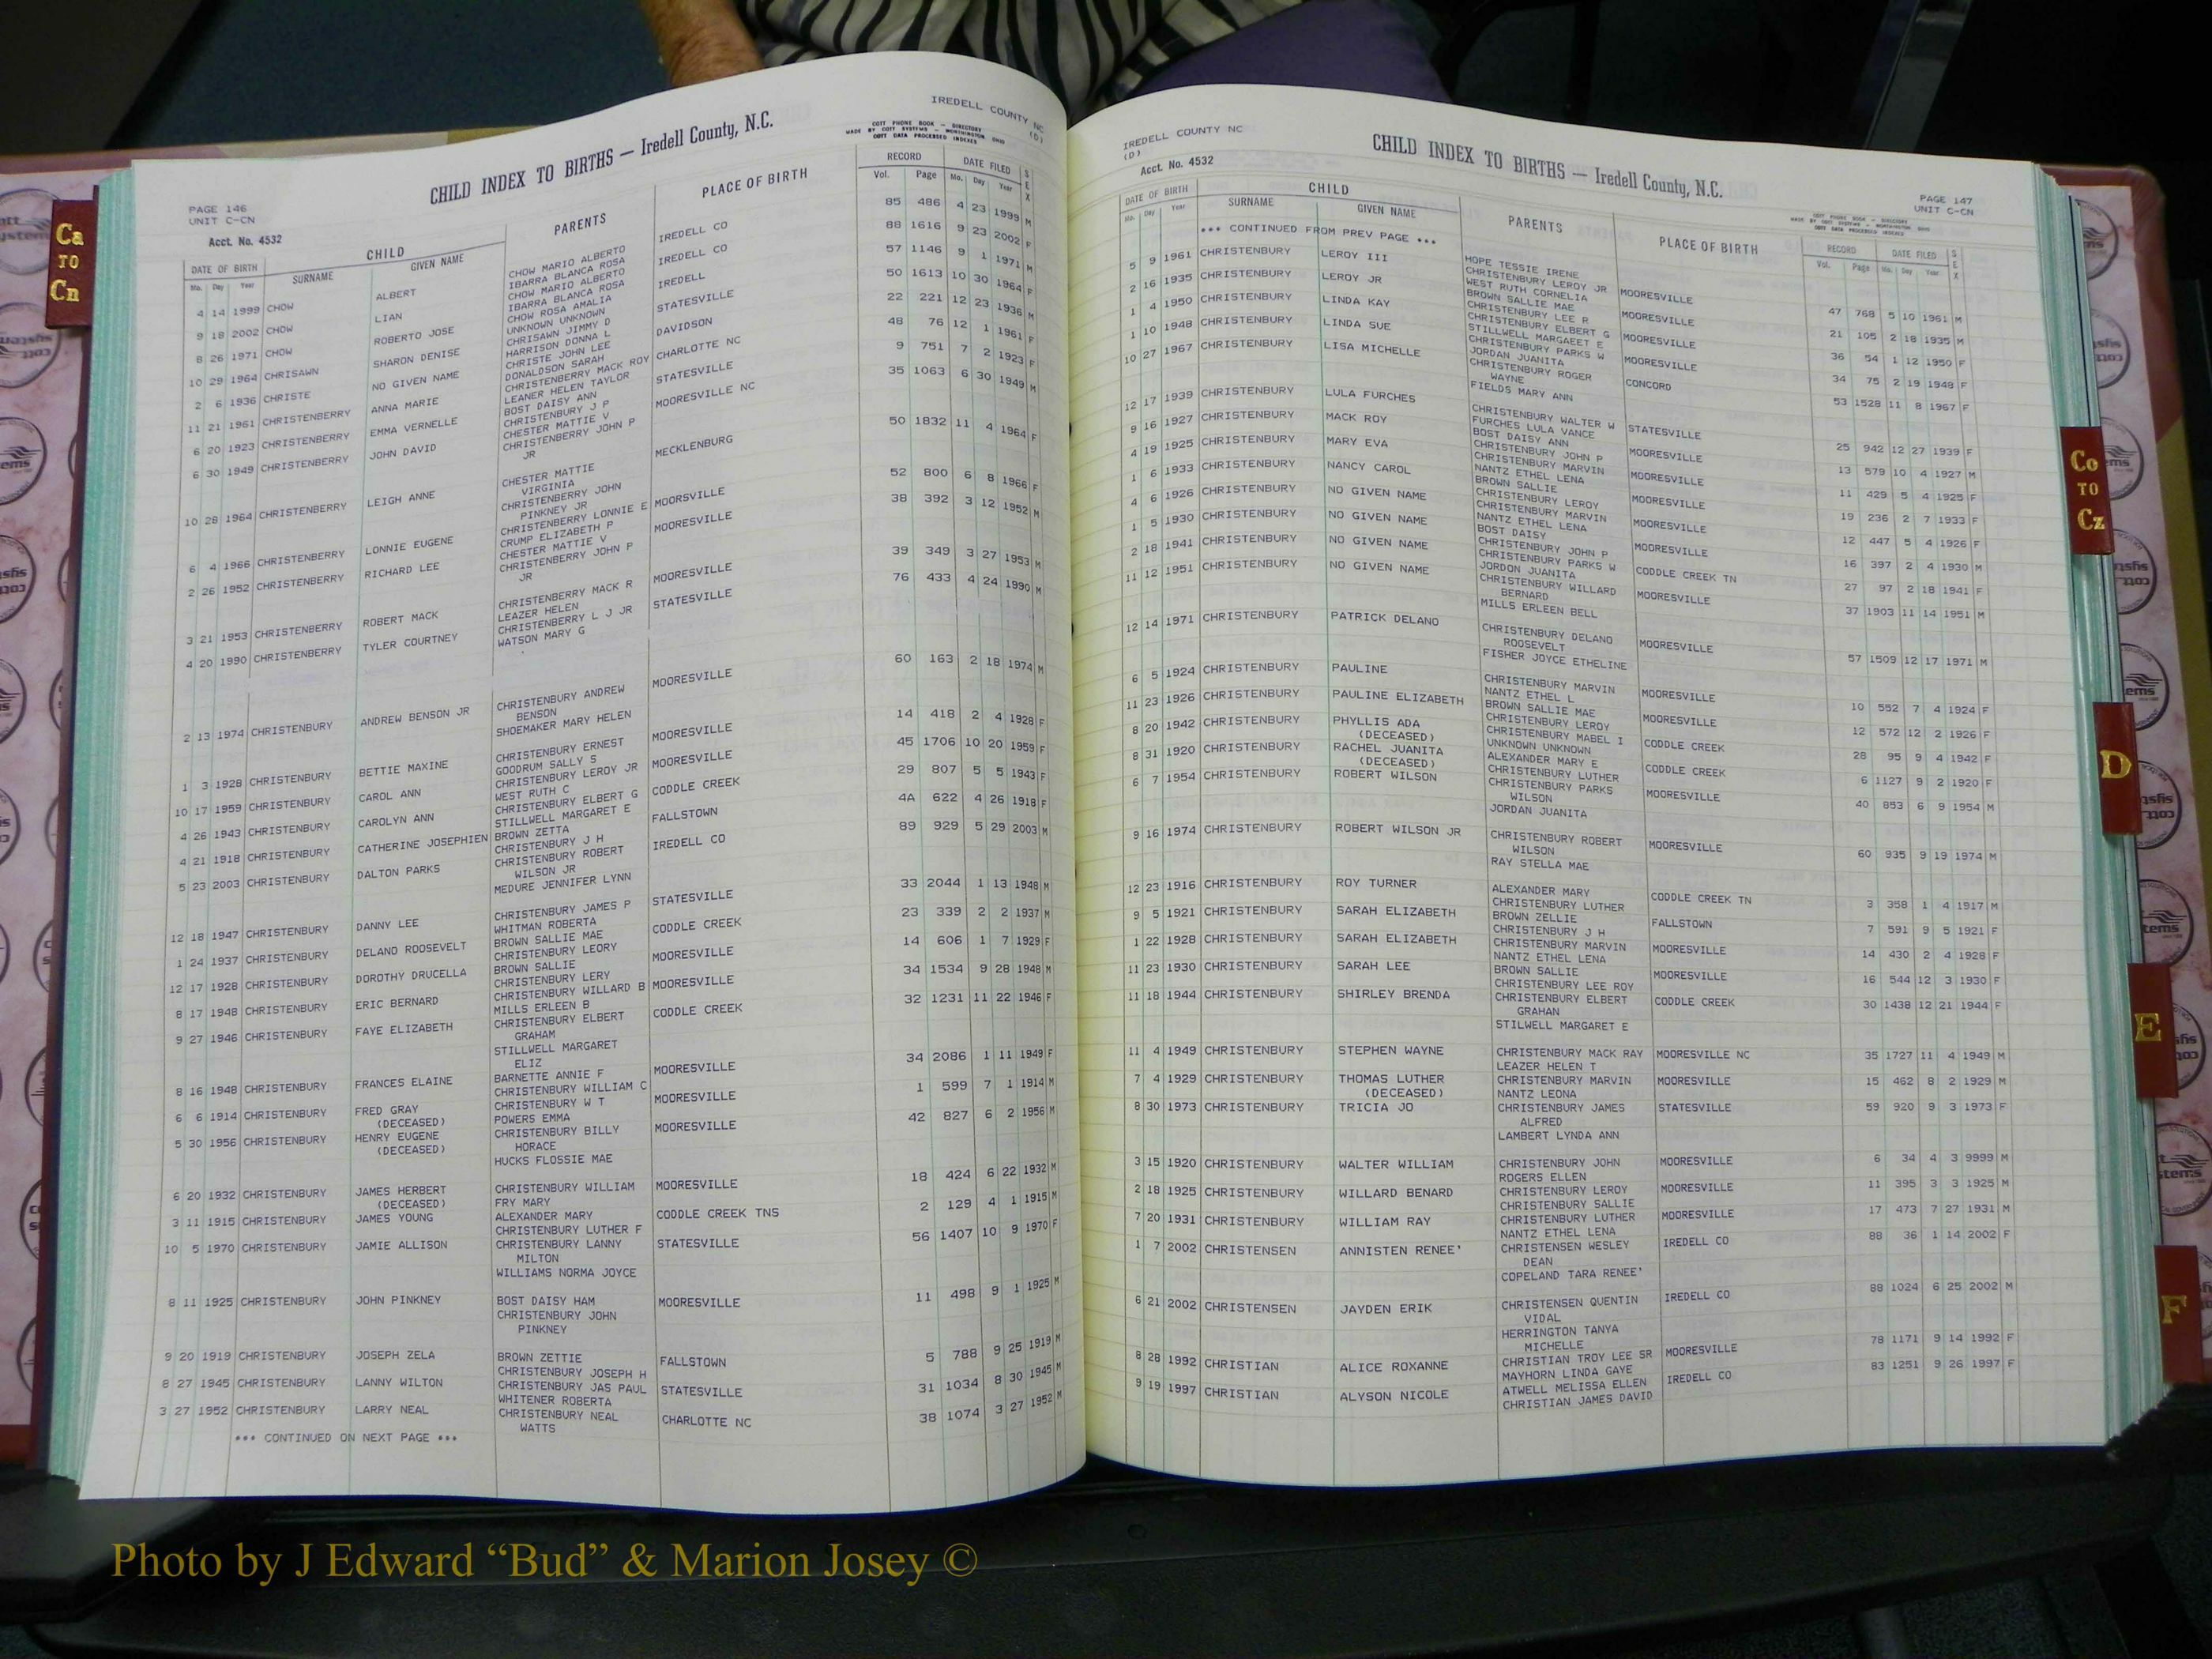 IREDELL COUNTY NC
(D)
CHILD INDEX TO BIRTHS — Iredell County, N.C.
COTT PHONE BOOK — DIRECTORY
MADE BY COTT SYSTEMS — WORTHINGTON OHIO
COTT DATA PROCESSED INDEXES
PAGE 146
UNIT C-CN
Acct. No. 4532
CHILD PARENTS PLACE OF BIRTH RECORD DATE FILED SEX
DATE OF BIRTH SURNAME GIVEN NAME Vol. Page Mo. Day Year
Mo. Day Year
4 14 1999 CHOW ALBERT CHOW MARIO ALBERTO IREDELL CO 85 486 4 23 1999 M
IBARRA BLANCA ROSA
9 18 2002 CHOW LIAN CHOW MARIO ALBERTO IREDELL CO 88 1616 9 23 2002 F
IBARRA BLANCA ROSA
8 26 1971 CHOW ROBERTO JOSE CHOW ROSA AMALIA IREDELL 57 1146 9 1 1971 M
UNKNOWN UNKNOWN
10 29 1964 CHRISAWN SHARON DENISE CHRISAWN JIMMY D STATESVILLE 50 1613 10 30 1964 F
HARRISON DONNA L
2 6 1936 CHRISTE NO GIVEN NAME CHRISTE JOHN LEE DAVIDSON 22 221 12 23 1936 M
DONALDSON SARAH
11 21 1961 CHRISTENBERRY ANNA MARIE CHRISTENBERRY MACK ROY CHARLOTTE NC 48 76 12 1 1961 F
LEANER HELEN TAYLOR
6 20 1923 CHRISTENBERRY EMMA VERNELLE BOST DAISY ANN STATESVILLE 9 751 7 2 1923 F
CHRISTENBURY J P
6 30 1949 CHRISTENBERRY JOHN DAVID CHESTER MATTIE V MOORESVILLE NC 35 1063 6 30 1949 M
CHRISTENBERRY JOHN P
JR
10 28 1964 CHRISTENBERRY LEIGH ANNE CHESTER MATTIE MECKLENBURG 50 1832 11 4 1964 F
VIRGINIA
CHRISTENBERRY JOHN
PINKNEY JR
6 4 1966 CHRISTENBERRY LONNIE EUGENE CHRISTENBERRY LONNIE E MOORSVILLE 52 800 6 8 1966 F
CRUMP ELIZABETH P
2 26 1952 CHRISTENBERRY RICHARD LEE CHESTER MATTIE V MOORESVILLE 38 392 3 12 1952 M
CHRISTENBERRY JOHN P
JR
3 21 1953 CHRISTENBERRY ROBERT MACK CHRISTENBERRY MACK R MOORESVILLE 39 349 3 27 1953 M
LEAZER HELEN
4 20 1990 CHRISTENBERRY TYLER COURTNEY CHRISTENBERRY L J JR STATESVILLE 76 433 4 24 1990 M
WATSON MARY G
2 13 1974 CHRISTENBURY ANDREW BENSON JR CHRISTENBURY ANDREW MOORESVILLE 60 163 2 18 1974 M
BENSON
SHOEMAKER MARY HELEN
1 3 1928 CHRISTENBURY BETTIE MAXINE CHRISTENBURY ERNEST MOORESVILLE 14 418 2 4 1928 F
GOODRUM SALLY S
10 17 1959 CHRISTENBURY CAROL ANN CHRISTENBURY LEROY JR MOORESVILLE 45 1706 10 20 1959 F
WEST RUTH C
4 26 1943 CHRISTENBURY CAROLYN ANN CHRISTENBURY ELBERT G CODDLE CREEK 29 807 5 5 1943 F
STILLWELL MARGARET E
4 21 1918 CHRISTENBURY CATHERINE JOSEPHIEN BROWN ZETTA FALLSTOWN 4A 622 4 26 1918 F
CHRISTENBURY J H
5 23 2003 CHRISTENBURY DALTON PARKS CHRISTENBURY ROBERT IREDELL CO 89 929 5 29 2003 M
WILSON JR
MEDURE JENNIFER LYNN
12 18 1947 CHRISTENBURY DANNY LEE CHRISTENBURY JAMES P STATESVILLE 33 2044 1 13 1948 M
WHITMAN ROBERTA
1 24 1937 CHRISTENBURY DELANO ROOSEVELT BROWN SALLIE MAE CODDLE CREEK 23 339 2 2 1937 M
CHRISTENBURY LEORY
12 17 1928 CHRISTENBURY DOROTHY DRUCELLA BROWN SALLIE MOORESVILLE 14 606 1 7 1929 F
CHRISTENBURY LERY
8 17 1948 CHRISTENBURY ERIC BERNARD CHRISTENBURY WILLARD B MOORESVILLE 34 1534 9 28 1948 M
MILLS ERLEEN B
9 27 1946 CHRISTENBURY FAYE ELIZABETH CHRISTENBURY ELBERT CODDLE CREEK 32 1231 11 22 1946 F
GRAHAM
STILLWELL MARGARET
ELIZ
8 16 1948 CHRISTENBURY FRANCES ELAINE BARNETTE ANNIE F MOORESVILLE 34 2086 1 11 1949 F
CHRISTENBURY WILLIAM C
6 6 1914 CHRISTENBURY FRED GRAY CHRISTENBURY W T MOORESVILLE 1 599 7 1 1914 M
(DECEASED) POWERS EMMA
5 30 1956 CHRISTENBURY HENRY EUGENE CHRISTENBURY BILLY MOORESVILLE 42 827 6 2 1956 M
(DECEASED) HORACE
HUCKS FLOSSIE MAE
6 20 1932 CHRISTENBURY JAMES HERBERT CHRISTENBURY WILLIAM MOORESVILLE 18 424 6 22 1932 M
(DECEASED) FRY MARY
3 11 1915 CHRISTENBURY JAMES YOUNG ALEXANDER MARY CODDLE CREEK TNS 2 129 4 1 1915 M
CHRISTENBURY LUTHER F
10 5 1970 CHRISTENBURY JAMIE ALLISON CHRISTENBURY LANNY STATESVILLE 56 1407 10 9 1970 F
MILTON
WILLIAMS NORMA JOYCE
8 11 1925 CHRISTENBURY JOHN PINKNEY BOST DAISY HAM MOORESVILLE 11 498 9 1 1925 M
CHRISTENBURY JOHN
PINKNEY
9 20 1919 CHRISTENBURY JOSEPH ZELA BROWN ZETTIE FALLSTOWN 5 788 9 25 1919 M
CHRISTENBURY JOSEPH H
8 27 1945 CHRISTENBURY LANNY WILTON CHRISTENBURY JAS PAUL STATESVILLE 31 1034 8 30 1945 M
WHITENER ROBERTA
3 27 1952 CHRISTENBURY LARRY NEAL CHRISTENBURY NEAL CHARLOTTE NC 38 1074 3 27 1952 M
WATTS
*** CONTINUED ON NEXT PAGE ***
IREDELL COUNTY NC
(D)
Acct. No. 4532
CHILD INDEX TO BIRTHS — Iredell County, N.C.
PAGE 147
UNIT C-CN
COTT PHONE BOOK — DIRECTORY
MADE BY COTT SYSTEMS — WORTHINGTON OHIO
COTT DATA PROCESSED INDEXES
DATE OF BIRTH CHILD PARENTS PLACE OF BIRTH RECORD DATE FILED SEX
Mo. Day Year SURNAME GIVEN NAME Vol. Page Mo. Day Year
*** CONTINUED FROM PREV PAGE ***
HOPE TESSIE IRENE
5 9 1961 CHRISTENBURY LEROY III CHRISTENBURY LEROY JR MOORESVILLE 47 768 5 10 1961 M
WEST RUTH CORNELIA
2 16 1935 CHRISTENBURY LEROY JR BROWN SALLIE MAE MOORESVILLE 21 105 2 18 1935 M
CHRISTENBURY LEE R
1 4 1950 CHRISTENBURY LINDA KAY CHRISTENBURY ELBERT G MOORESVILLE 36 54 1 12 1950 F
STILLWELL MARGAEET E
1 10 1948 CHRISTENBURY LINDA SUE CHRISTENBURY PARKS W MOORESVILLE 34 75 2 19 1948 F
JORDAN JUANITA
10 27 1967 CHRISTENBURY LISA MICHELLE CHRISTENBURY ROGER CONCORD 53 1528 11 8 1967 F
WAYNE
FIELDS MARY ANN
12 17 1939 CHRISTENBURY LULA FURCHES CHRISTENBURY WALTER W STATESVILLE 25 942 12 27 1939 F
FURCHES LULA VANCE
9 16 1927 CHRISTENBURY MACK ROY BOST DAISY ANN MOORESVILLE 13 579 10 4 1927 M
CHRISTENBURY JOHN P
4 19 1925 CHRISTENBURY MARY EVA CHRISTENBURY MARVIN MOORESVILLE 11 429 5 4 1925 F
NANTZ ETHEL LENA
1 6 1933 CHRISTENBURY NANCY CAROL BROWN SALLIE MOORESVILLE 19 236 2 7 1933 F
CHRISTENBURY LEROY
4 6 1926 CHRISTENBURY NO GIVEN NAME CHRISTENBURY MARVIN MOORESVILLE 12 447 5 4 1926 F
NANTZ ETHEL LENA
1 5 1930 CHRISTENBURY NO GIVEN NAME BOST DAISY CODDLE CREEK TN 16 397 2 4 1930 M
CHRISTENBURY JOHN P
2 18 1941 CHRISTENBURY NO GIVEN NAME CHRISTENBURY PARKS W MOORESVILLE 27 97 2 18 1941 F
JORDON JUANITA
11 12 1951 CHRISTENBURY NO GIVEN NAME CHRISTENBURY WILLARD 37 1903 11 14 1951 M
BERNARD
MILLS ERLEEN BELL
12 14 1971 CHRISTENBURY PATRICK DELANO CHRISTENBURY DELANO MOORESVILLE 57 1509 12 17 1971 M
ROOSEVELT
FISHER JOYCE ETHELINE
6 5 1924 CHRISTENBURY PAULINE CHRISTENBURY MARVIN MOORESVILLE 10 552 7 4 1924 F
NANTZ ETHEL L
11 23 1926 CHRISTENBURY PAULINE ELIZABETH BROWN SALLIE MAE MOORESVILLE 12 572 12 2 1926 F
CHRISTENBURY LEROY
8 20 1942 CHRISTENBURY PHYLLIS ADA CHRISTENBURY MABEL I CODDLE CREEK 28 95 9 4 1942 F
(DECEASED) UNKNOWN UNKNOWN
8 31 1920 CHRISTENBURY RACHEL JUANITA ALEXANDER MARY E CODDLE CREEK 6 1127 9 2 1920 F
(DECEASED) CHRISTENBURY LUTHER
6 7 1954 CHRISTENBURY ROBERT WILSON CHRISTENBURY PARKS MOORESVILLE 40 853 6 9 1954 M
WILSON
JORDAN JUANITA
9 16 1974 CHRISTENBURY ROBERT WILSON JR CHRISTENBURY ROBERT MOORESVILLE 60 935 9 19 1974 M
WILSON
RAY STELLA MAE
12 23 1916 CHRISTENBURY ROY TURNER ALEXANDER MARY CODDLE CREEK TN 3 358 1 4 1917 M
CHRISTENBURY LUTHER
9 5 1921 CHRISTENBURY SARAH ELIZABETH BROWN ZELLIE FALLSTOWN 7 591 9 5 1921 F
CHRISTENBURY J H
1 22 1928 CHRISTENBURY SARAH ELIZABETH CHRISTENBURY MARVIN MOORESVILLE 14 430 2 4 1928 F
NANTZ ETHEL LENA
11 23 1930 CHRISTENBURY SARAH LEE BROWN SALLIE MOORESVILLE 16 544 12 3 1930 F
CHRISTENBURY LEE ROY
11 18 1944 CHRISTENBURY SHIRLEY BRENDA CHRISTENBURY ELBERT CODDLE CREEK 30 1438 12 21 1944 F
GRAHAN
STILWELL MARGARET E
11 4 1949 CHRISTENBURY STEPHEN WAYNE CHRISTENBURY MACK RAY MOORESVILLE NC 35 1727 11 4 1949 M
LEAZER HELEN T
7 4 1929 CHRISTENBURY THOMAS LUTHER CHRISTENBURY MARVIN MOORESVILLE 15 462 8 2 1929 M
(DECEASED) NANTZ LEONA
8 30 1973 CHRISTENBURY TRICIA JO CHRISTENBURY JAMES STATESVILLE 59 920 9 3 1973 F
ALFRED
LAMBERT LYNDA ANN
3 15 1920 CHRISTENBURY WALTER WILLIAM CHRISTENBURY JOHN MOORESVILLE 6 34 4 3 9999 M
ROGERS ELLEN
2 18 1925 CHRISTENBURY WILLARD BENARD CHRISTENBURY LEROY MOORESVILLE 11 395 3 3 1925 M
CHRISTENBURY SALLIE
7 20 1931 CHRISTENBURY WILLIAM RAY CHRISTENBURY LUTHER MOORESVILLE 17 473 7 27 1931 M
NANTZ ETHEL LENA
1 7 2002 CHRISTENSEN ANNISTEN RENEE' CHRISTENSEN WESLEY IREDELL CO 88 36 1 14 2002 F
DEAN
COPELAND TARA RENEE'
6 21 2002 CHRISTENSEN JAYDEN ERIK CHRISTENSEN QUENTIN IREDELL CO 88 1024 6 25 2002 M
VIDAL
HERRINGTON TANYA
MICHELLE
8 28 1992 CHRISTIAN ALICE ROXANNE CHRISTIAN TROY LEE SR MOORESVILLE 78 1171 9 14 1992 F
MAYHORN LINDA GAYE
9 19 1997 CHRISTIAN ALYSON NICOLE ATWELL MELISSA ELLEN IREDELL CO 83 1251 9 26 1997 F
CHRISTIAN JAMES DAVID
Ca
TO
Cn
Co
TO
Cz
D
E
F
Photo by J Edward “Bud” & Marion Josey ©